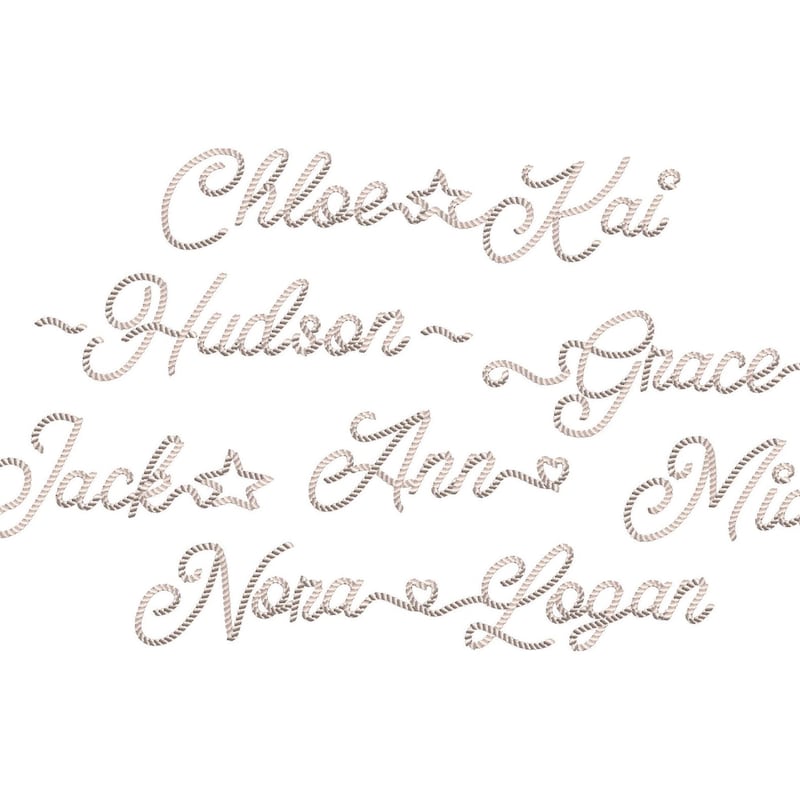 Chloe Kai
~Hudson~
Grace
Jack Ann
Nora Logan